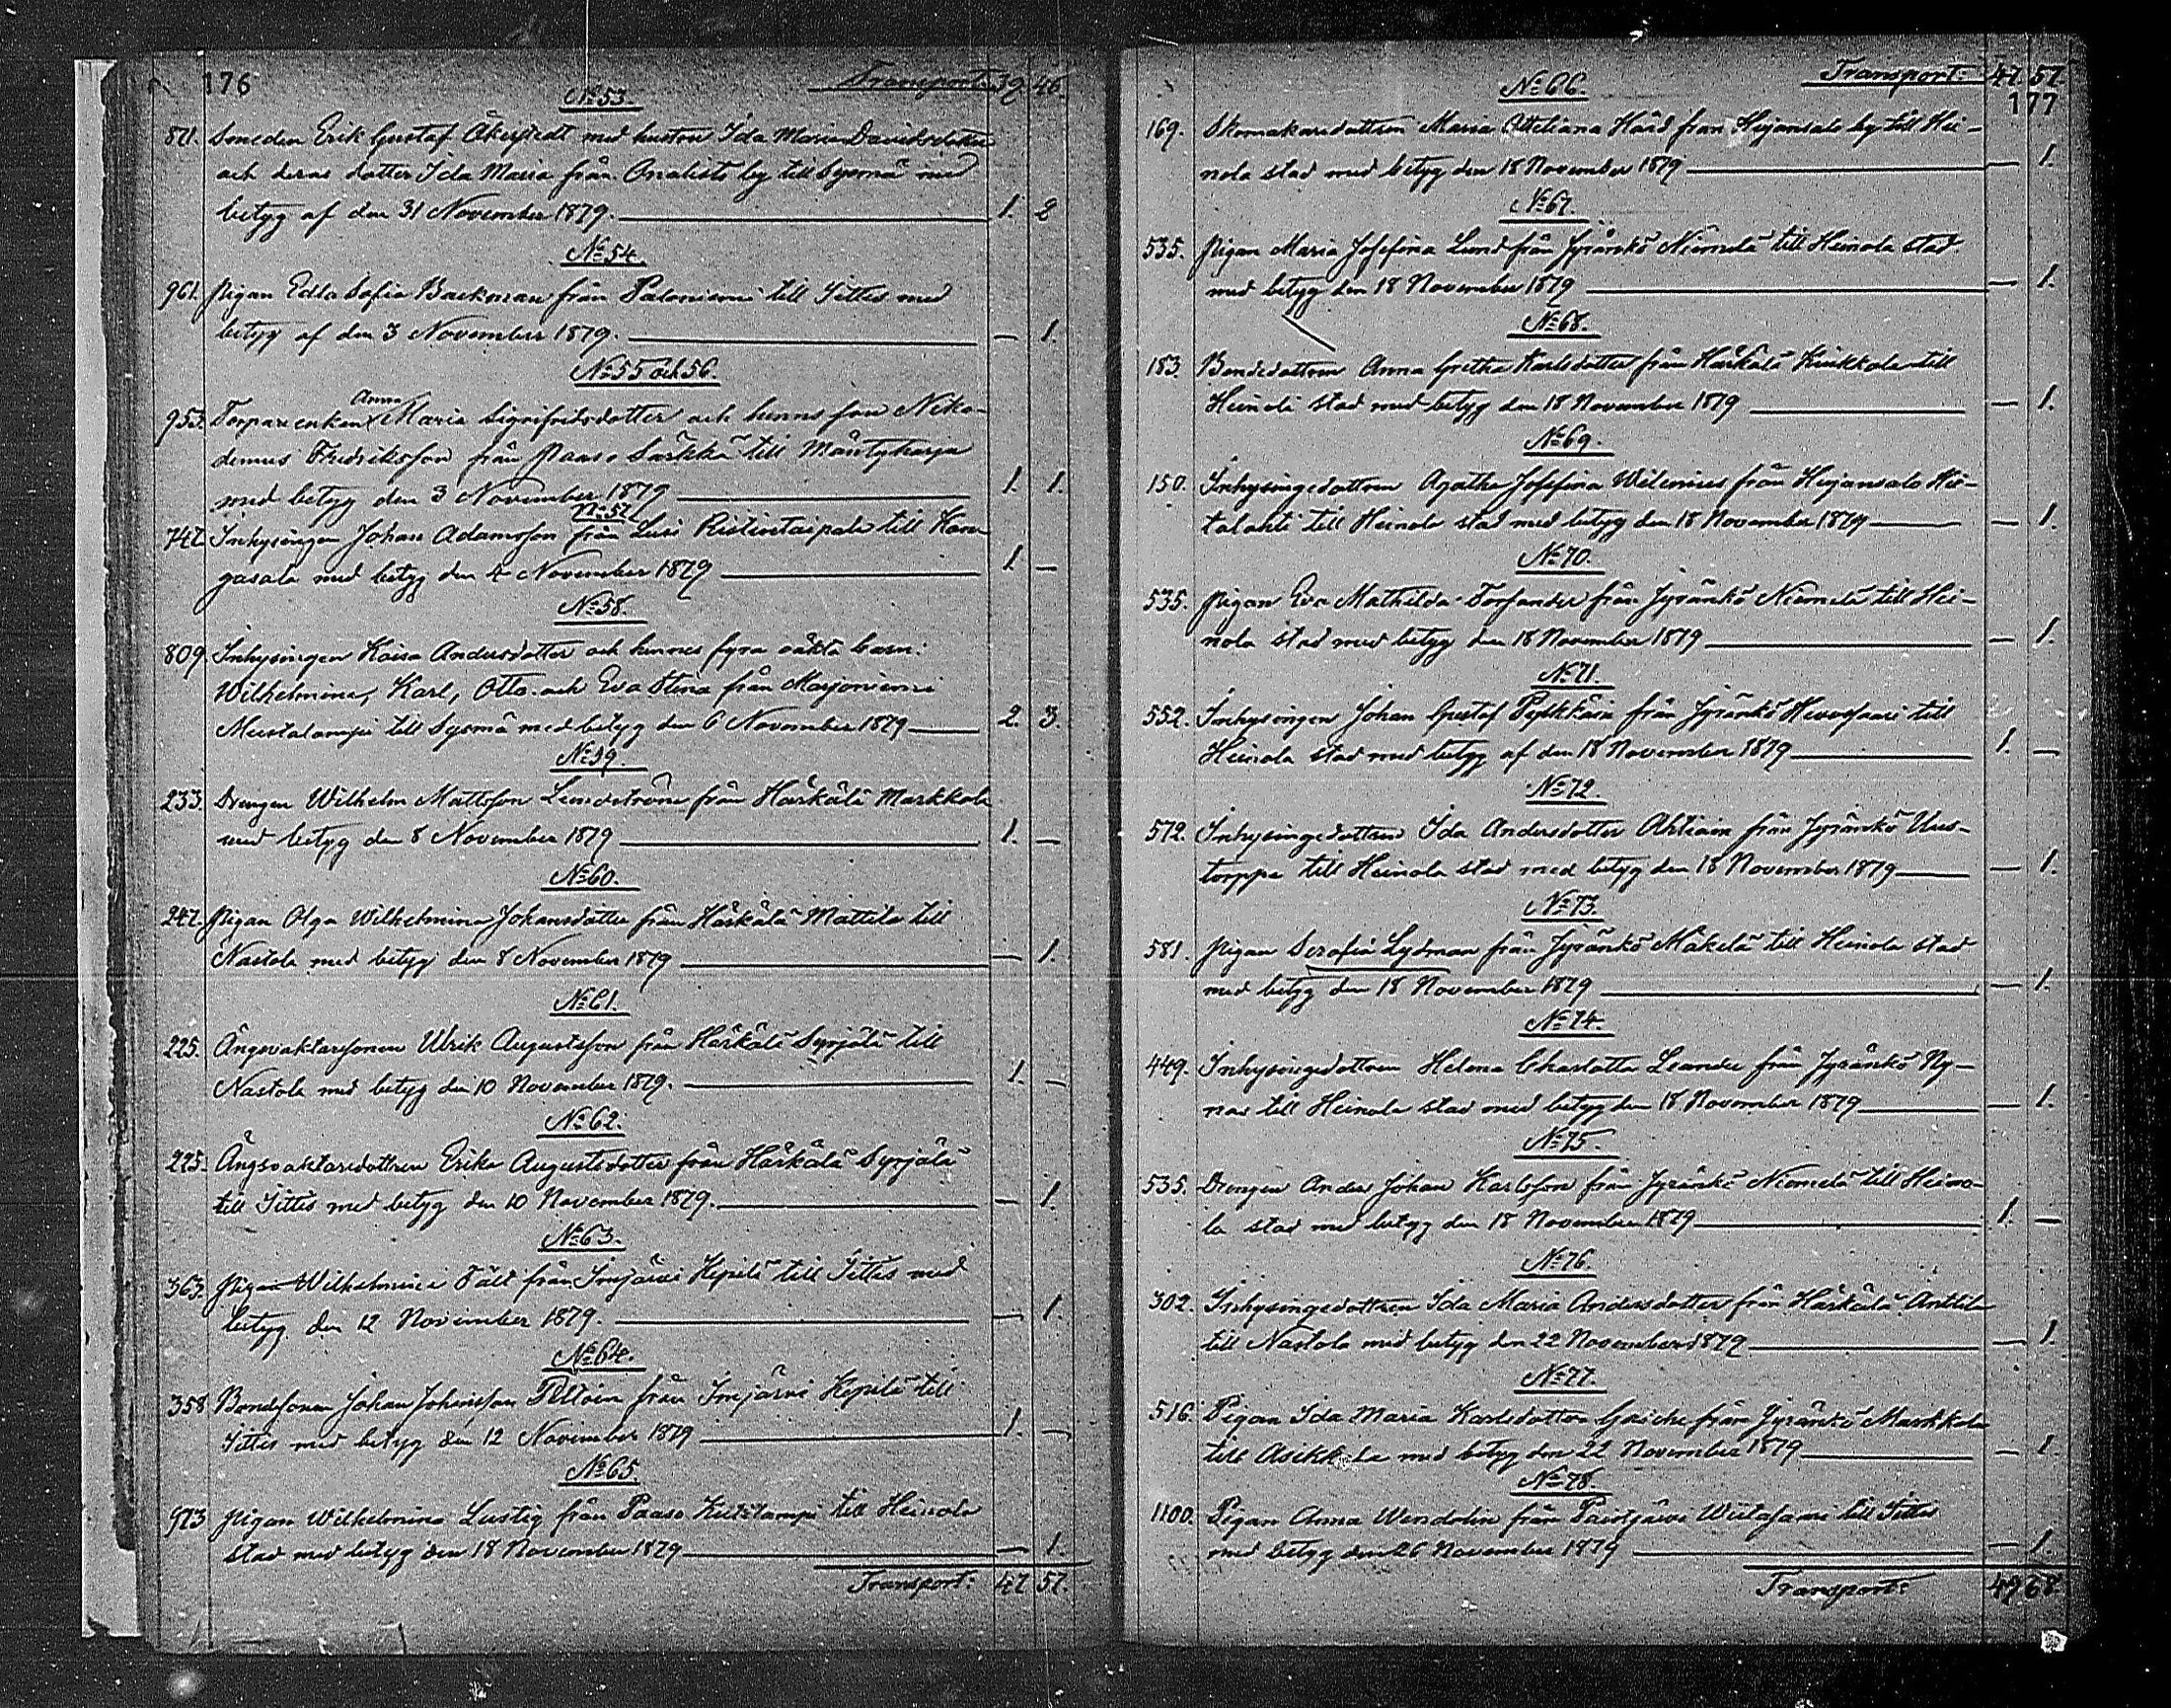 176
Transport: 39 46.
No 53.
871. Smeden Erik Gustaf Åkerstedt med hustru Ida Maria Davidsdotter
och deras dotter Ida Maria från Onalisto by till Sysmä med
betyg af den 31 November 1879. 1. 2
No 54.
961. Pigan Edla Sofia Backman från Paloniemi till Jittis med
betyg af den 3 November 1879. — 1.
No 55 och 56.
Anna
953. Torpareenkan Maria Sigrifridsdotter och hennes son Niko-
demus Fredriksson från Paaso Särkkä till Mäntyharju
med betyg den 3 November 1879 1. 1.
No 57.
747. Inhysingen Johan Adamsson från Lusi Ristivetaipale till Kan-
gasala med betyg den 4 November 1879 1. —
No 58.
809. Inhysingen Kaisa Andersdotter och hennes fyra oäkta barn:
Wilhelmina, Karl, Otto och Eva Stina från Marjoniemi
Mustalampi till Sysmä med betyg den 6 November 1879 2. 3.
No 59.
233. Drengen Wilhelm Mattsson Lindström från Härkälä Markkola
med betyg den 8 November 1879 1. —
No 60.
247. Pigan Olga Wilhelmina Johansdotter från Härkälä Mattila till
Nastola med betyg den 8 November 1879 — 1.
No 61.
225. Ängsvaktaresonen Ulrik Augustsson från Härkälä Syrjälä till
Nastola med betyg den 10 November 1879. 1. —
No 62.
225. Ängsvaktaredottren Erika Augustsdotter från Härkälä Syrjälä
till Jittis med betyg den 10 November 1879. — 1.
No 63.
363. Pigan Wilhelmina Fält från Imjärvi Hepilä till Jittis med
betyg den 12 November 1879. — 1.
No 64.
358 Bondesonen Johan Johansson Peltoin från Imjärvi Hepilä till
Jittis med betyg den 12 November 1879 1. —
No 65.
973 Pigan Wilhelmina Lustig från Paaso till Heinola
stad med betyg den 18 November 1879 — 1.
Transport: 47 57.
Transport: 47 57.
177
No 66.
169. Skomakaredottren Maria Hård från Heijansalo by till Hei-
nola stad med betyg den 18 November 1879 — 1.
No 67.
535. Pigan Maria Josefina Lund från Jyränkö Niemelä till Heinola stad
med betyg den 18 November 1879 — 1.
No 68.
183. Bondedottren Anna Gretha Karlsdotter från Härkälä Keikkala till
Heinola stad med betyg den 18 November 1879 — 1.
No 69.
150. Inhysingedottren Agatha Josefina Wilenius från Heijansalo Hie-
talahti till Heinola stad med betyg den 18 November 1879 — 1.
No 70.
535. Pigan Eva Mathilda Forsander från Jyränkö Niemelä till Hei-
nola stad med betyg den 18 November 1879 — 1.
No 71.
552. Inhysingen Johan Gustaf från Jyränkö Hevossaari till
Heinola stad med betyg af den 18 November 1879 1. —
No 72.
572. Inhysingedottren Ida Andersdotter Ahtiain från Jyränkö Uus-
torppa till Heinola stad med betyg den 18 November 1879 — 1.
No 73.
581. Pigan Serafia Lydman från Jyränkö Mäkelä till Heinola stad
med betyg den 18 November 1879 — 1.
No 74.
449. Inhysingedottren Helena Charlotta Leander från Jyränkö Ny-
nas till Heinola stad med betyg den 18 November 1879 — 1.
No 75.
535. Drengen Anders Johan Karlsson från Jyränkö Niemelä till Heino-
la stad med betyg den 18 November 1879 1. —
No 76.
302. Inhysingedottren Ida Maria Andersdotter från Härkälä Anttila
till Nastola med betyg den 22 November 1879 — 1.
No 77.
516. Pigan Ida Maria Karlsdotter från Jyränkö Markkola
till Asikkala med betyg den 22 November 1879 — 1.
No 78.
1100. Pigan Anna Wendolin från Paistjärvi Wiitasaari till Jittis
med betyg den 26 November 1879 — 1.
Transport: 49 68